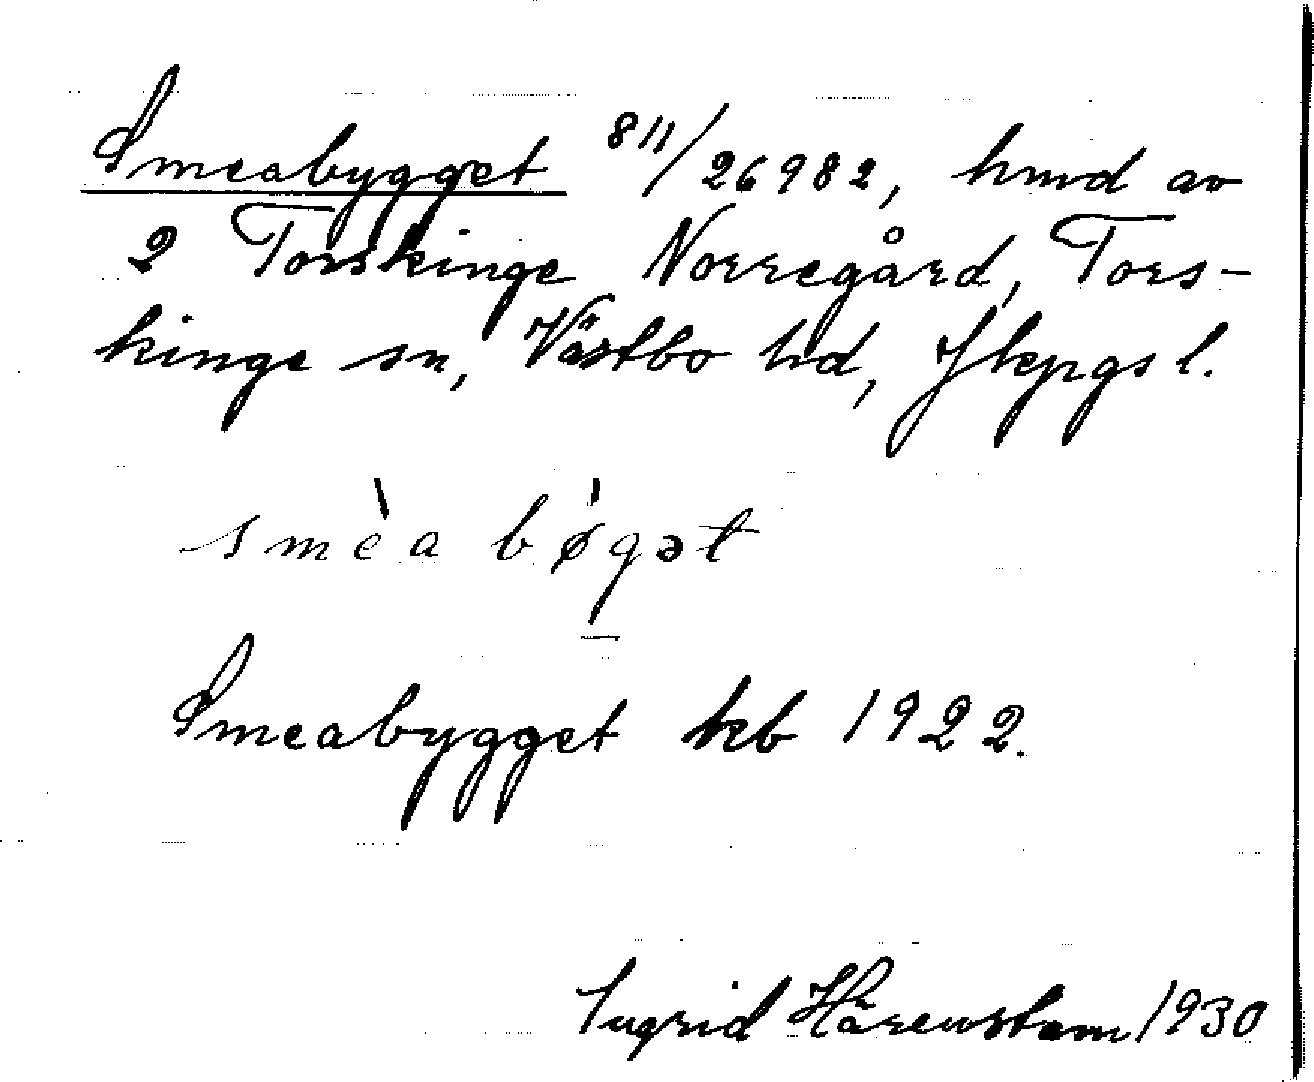 Smeabygget 811/26982, hmd av
2 Torskinge Norregård, Tors-
kinge sn, Västbo hd, Jkpgs l.
smèa bǿgət
Smeabygget kb 1922.
Ingrid Härenstam 1930